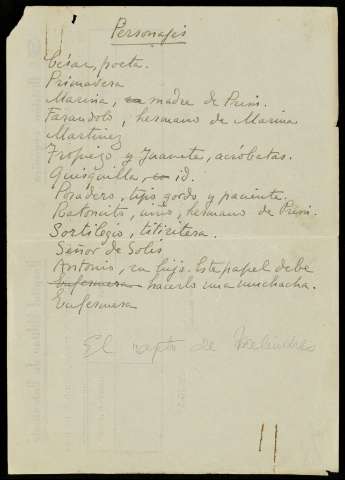 Personajes
César, poeta.
Primavera
Marina, madre de Prim.
Farándolo, hermano de Marina
Martínez
Tropiezo y Juanete, acróbatas.
Quisquilla, id.
Posadero, tipo gordo y paciente.
Ratoncito, niño, hermano de Prim.
Sortilegio, titiritera.
Señor de Solís
Antonio, su hijo. Este papel debe
hacerlo una muchacha.
Enfermera
El rapto de